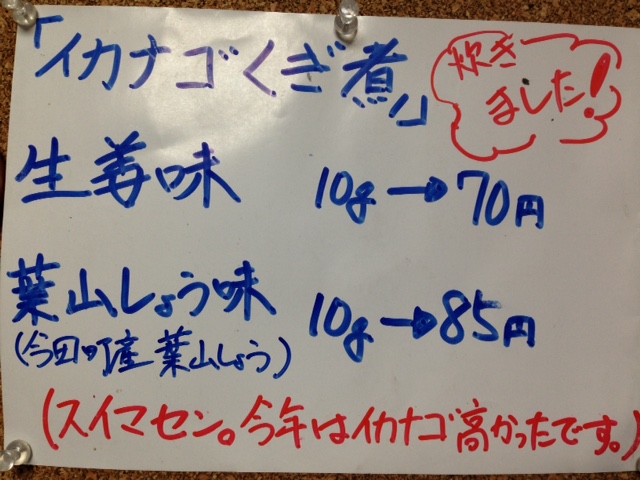 「イカナゴくぎ煮」
炊き
ました!
生姜味 10g→70円
葉山しょう味 10g→85円
(今田町産 葉山しょう)
(スイマセン。今年はイカナゴ高かったです。)